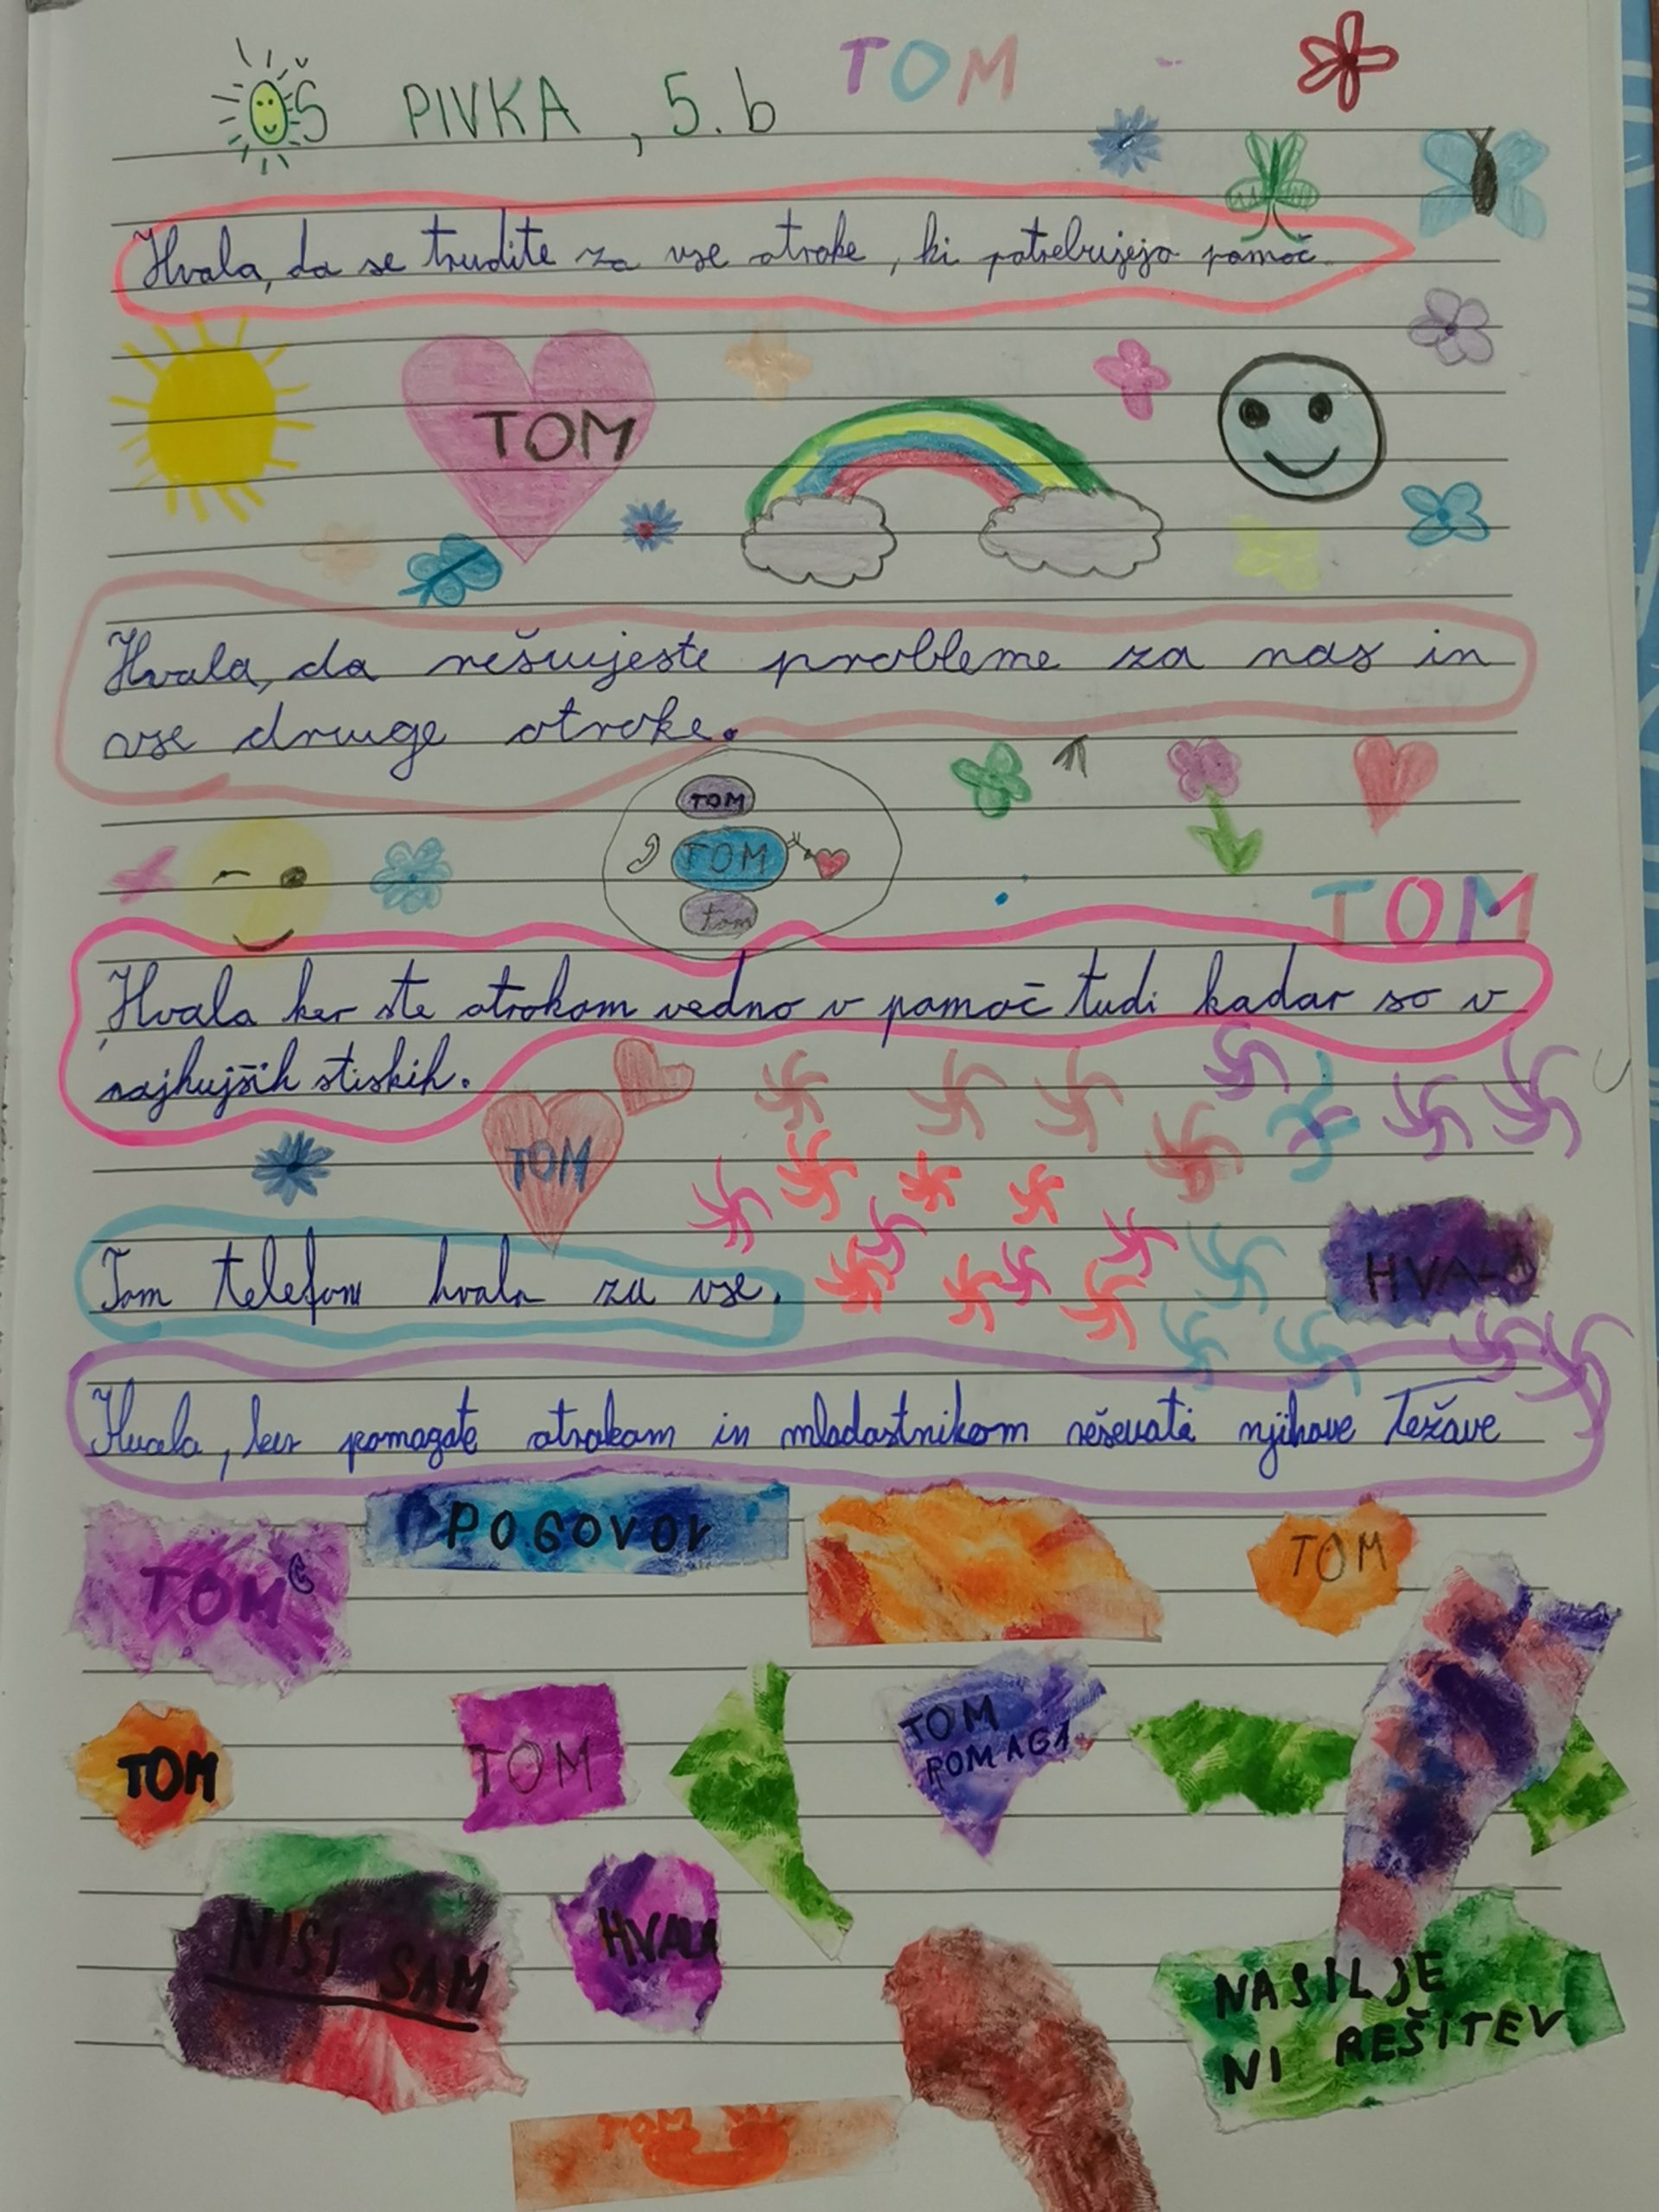 OŠ PIVKA, 5.b
TOM
Hvala, da se trudite za vse otroke, ki potrebujejo pomoč.
TOM
Hvala, da rešujeste probleme za nas in
vse druge otroke.
TOM
TOM
tom
TOM
Hvala ker ste otrokom vedno v pomoč tudi kadar so v
najhujših stiskih.
TOM
Tom telefon hvala za vse.
HVALA
Hvala, ker pomagate otrokom in mladostnikom reševati njihove težave
TOM
POGOVOR
TOM
TOM
TOM
TOM
POMAGA
NISI SAM
HVALA
NASILJE
NI REŠITEV
TOM